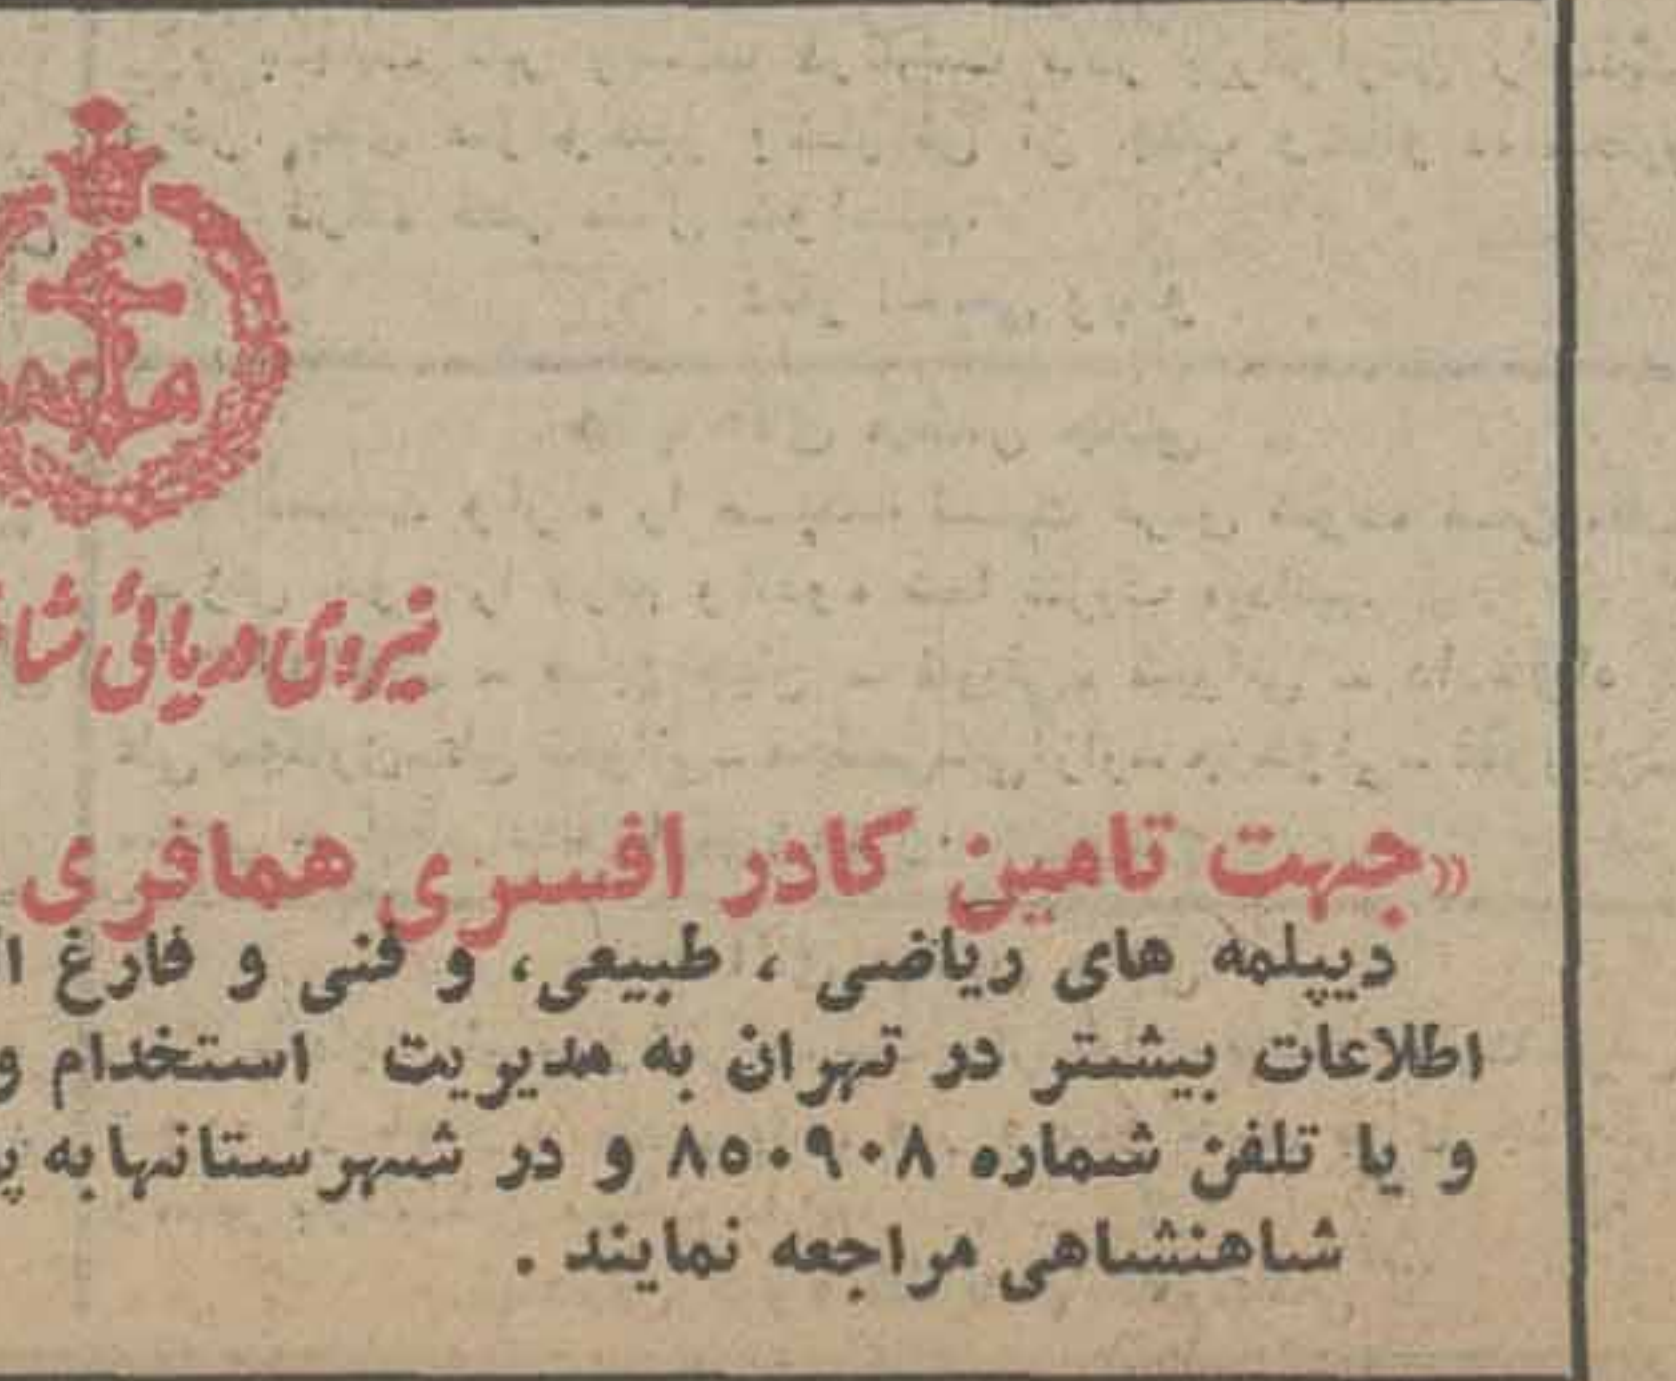 نیروی دریائی
«جهت تامین کادر افسری همافری
دیپلمه های ریاضی ، طبیعی، و فنی و فارغ
اطلاعات بیشتر در تهران به مدیریت استخدام و
و یا تلفن شماره ۸۵۰۹۰۸ و در شهرستانها به
شاهنشاهی مراجعه نمایند .